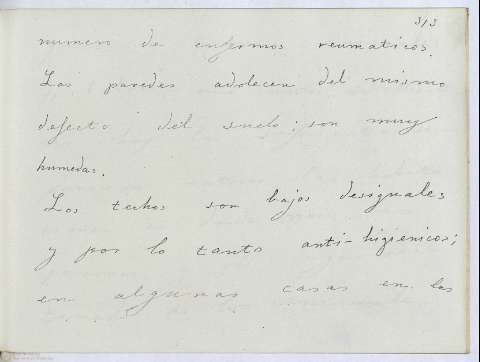 313
numero de enfermos reumaticos.
Las paredes adolecen del mismo
defecto del suelo; son muy
humedas.
Los techos son bajos desiguales
y por lo tanto anti-higienicos;
en algunas casas en las